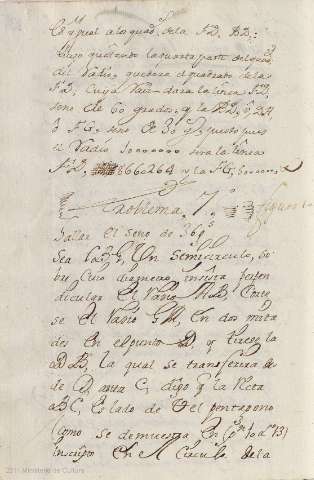 es ygual a los quad.s de la F.D. BD:
luego quitando la quarta parte del quad.
del Radio, quedara el quadrado de la
F.D, Cuya Raiz dara la linea F.D.
seno de 60 grados, y la BD, ô
FG, seno de 30 g.s puesto pues
el Radio 10000000 sera la linea
F.D. 8660264 y la FG, 5000000
Problema. 7.º figura 10
Hallar el seno de 36 g.s
Sea Un semicirculo, so
bre, Cuio diametro, insista perpen
dicular el Radio HB, Corte
se el Radio GH, en dos mita
des en el punto D y tirese la
DB, la qual se transferira de
de D, asta C, digo q la Recta
BC, es lado de el pentagono
(como se demuestra en
inscripto en el Circulo de la
2011 Ministerio de Cultura